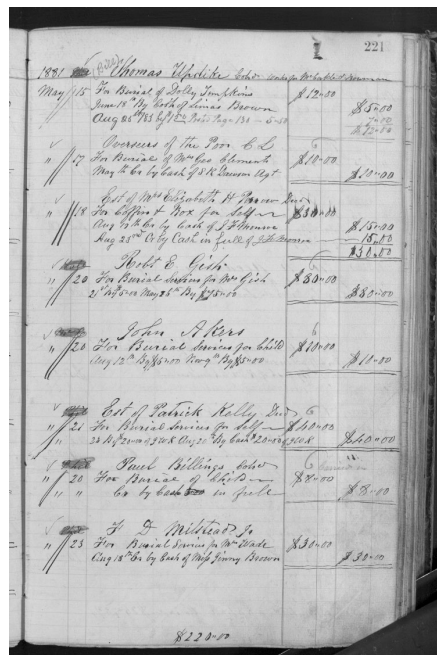 221
1881 (Bill) Thomas Updike Cold
May 15 For Burial of Dolly Tompkins $12-00
June 18th By Cash of Linas Brown $5-00
Aug 25th /83 By 5-50 7-00
$12-00
Overseers of the Poor C L
" 17 For Burial of Mrs Geo Clements $10-00
May Cr by Cash of S K Agt $10-00
Est of Mrs Elizabeth H Decd
" 18 For Coffin & Box for Self $30-00
Aug Cr by Cash of J F $15-00
Aug 23rd Cr by Cash in full of Brown 15-00
$30-00
Robt E Gish
" 20 For Burial Services for Mrs Gish $80-00
By 5-00 May 25th By $75-00 $80-00
John Akers
" 20 For Burial Services for Child $10-00
Aug 12th By $5-00 By $5-00 $10-00
Est of Patrick Kelly Decd
" 21 For Burial Services for Self $40-00
Aug 20th By Cash 20-00 $40-00
Paul Billings Cold
" 20 For Burial of Child $8-00
" " Cr by Cash in full $8-00
F D Milstead Jr
" 23 For Burial Services for Mrs Wade $30-00
Aug 18th Cr by Cash of Miss Jinny Brown $30-00
$220-00